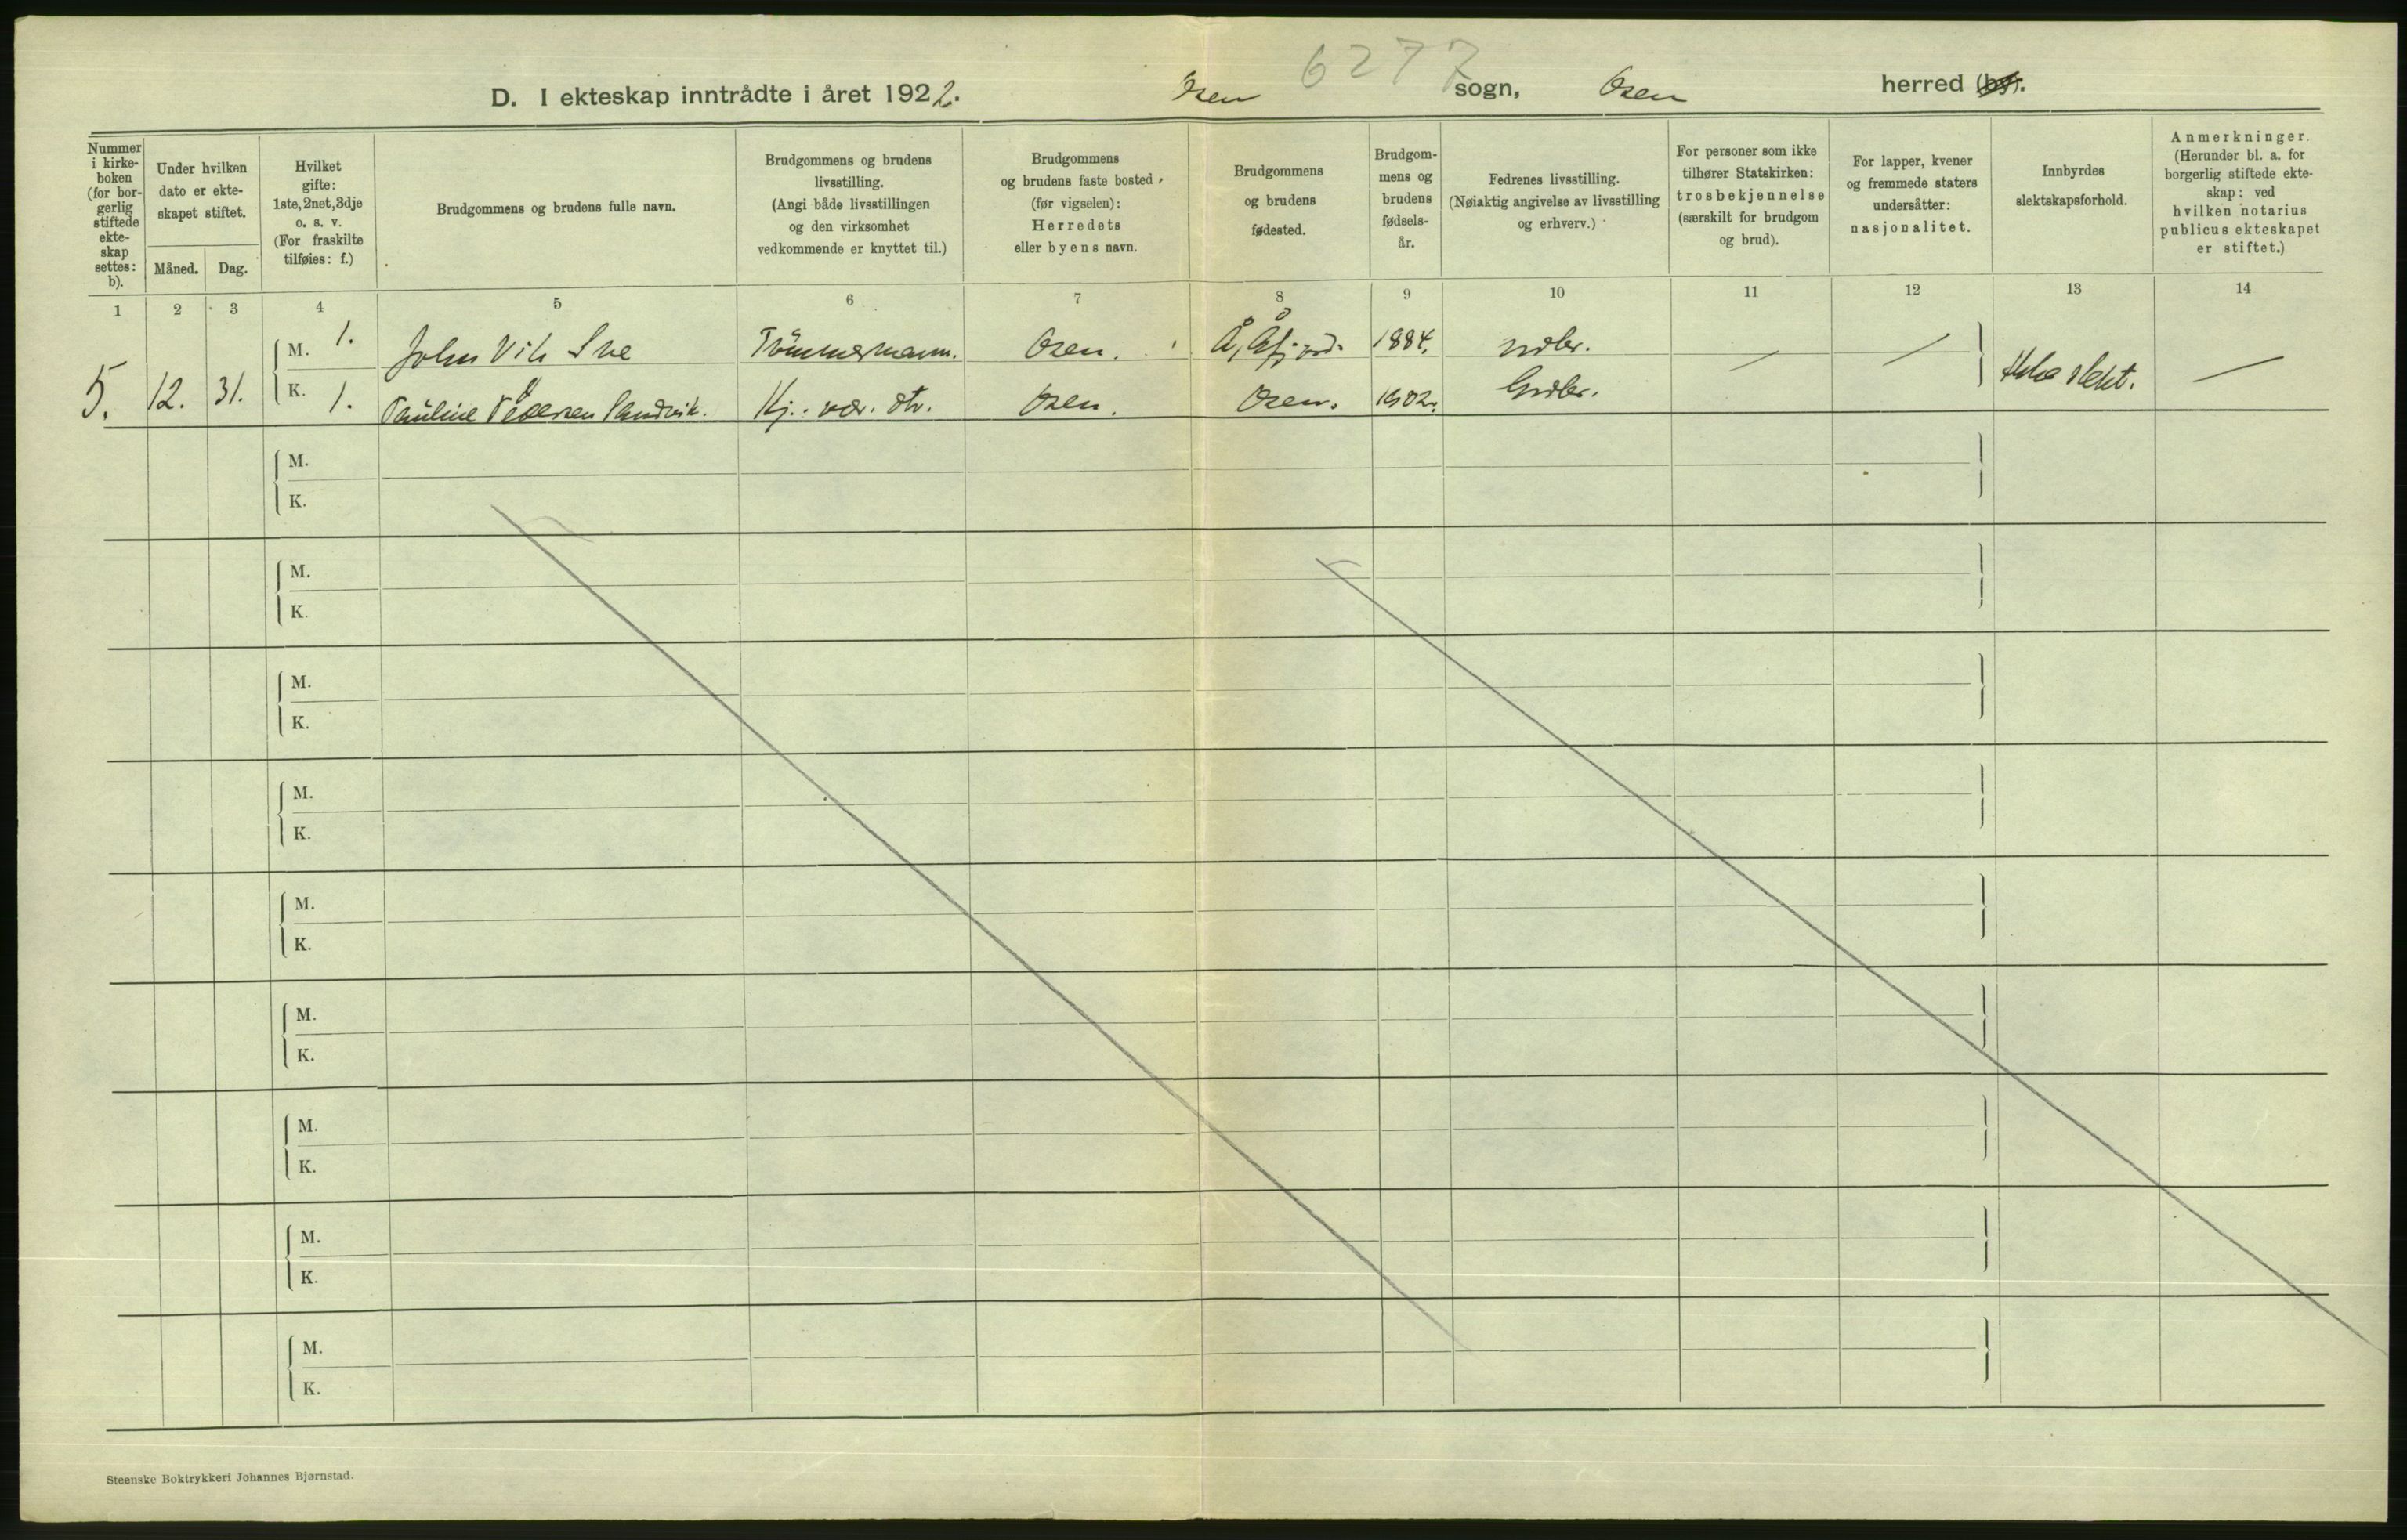 6277
D. I ekteskap inntrådte i året 1922. Osen sogn, Osen herred (by).
Nummer i kirkeboken (for borgerlig stiftede ekteskap settes: b).
Under hvilken dato er ekteskapet stiftet.
Måned. Dag.
Hvilket gifte: 1ste, 2net, 3dje o. s. v. (For fraskilte tilføies: f.)
Brudgommens og brudens fulle navn.
Brudgommens og brudens livsstilling. (Angi både livsstillingen og den virksomhet vedkommende er knyttet til.)
Brudgommens og brudens faste bosted (før vigselen): Herredets eller byens navn.
Brudgommens og brudens fødested.
Brudgommens og brudens fødselsår.
Fedrenes livsstilling. (Nøiaktig angivelse av livsstilling og erhverv.)
For personer som ikke tilhører Statskirken: trosbekjennelse (særskilt for brudgom og brud).
For lapper, kvener og fremmede staters undersåtter: nasjonalitet.
Innbyrdes slektskapsforhold.
Anmerkninger. (Herunder bl. a. for borgerlig stiftede ekteskap: ved hvilken notarius publicus ekteskapet er stiftet.)
1 2 3 4 5 6 7 8 9 10 11 12 13 14
M. 1. John Vik Sve Tömmermann. Osen. Å, Åfjord. 1884. — —
5. 12. 31. K. 1. Pauline Pedersen Sandvik. Kj. vær. dtr. Osen. Osen. 1902. Grdbr. Ikke slekt. —
M.
K.
M.
K.
M.
K.
M.
K.
M.
K.
M.
K.
M.
K.
M.
K.
M.
K.
Steenske Boktrykkeri Johannes Bjørnstad.